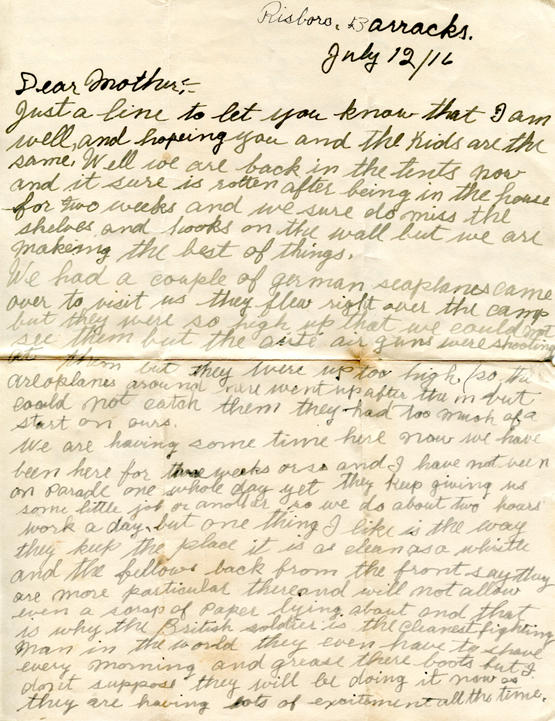 Risboro, Barracks.
July 12/16
Dear Mother;-
Just a line to let you know that I am
well, and hopeing you and the kids are the
same. Well we are back in the tents now
and it sure is rotten after being in the house
for two weeks and we sure do miss the
shelves and hooks on the wall but we are
making the best of things.
We had a couple of german seaplanes came
over to visit us they flew right over the camp
but they were so high up that we could not
see them but the ante air guns were shooting
at them but they were up too high so, the
areoplanes around here went up after them but
could not catch them they had too much of a
start on ours.
We are having some time here now we have
been here for three weeks or so and I have not been
on parade one whole day yet they keep giving us
some little job or another so we do about two hours
work a day, but one thing I like is the way
they keep the place it is as clean as a whistle
and the fellows back from the front say they
are more particular there and will not allow
even a scrap of paper lying about and that
is why the British soldier is the cleanest fighting
man in the world they even have to shave
every morning and grease there boots but I
don't suppose they will be doing it now as
they are having lots of excitement all the time.